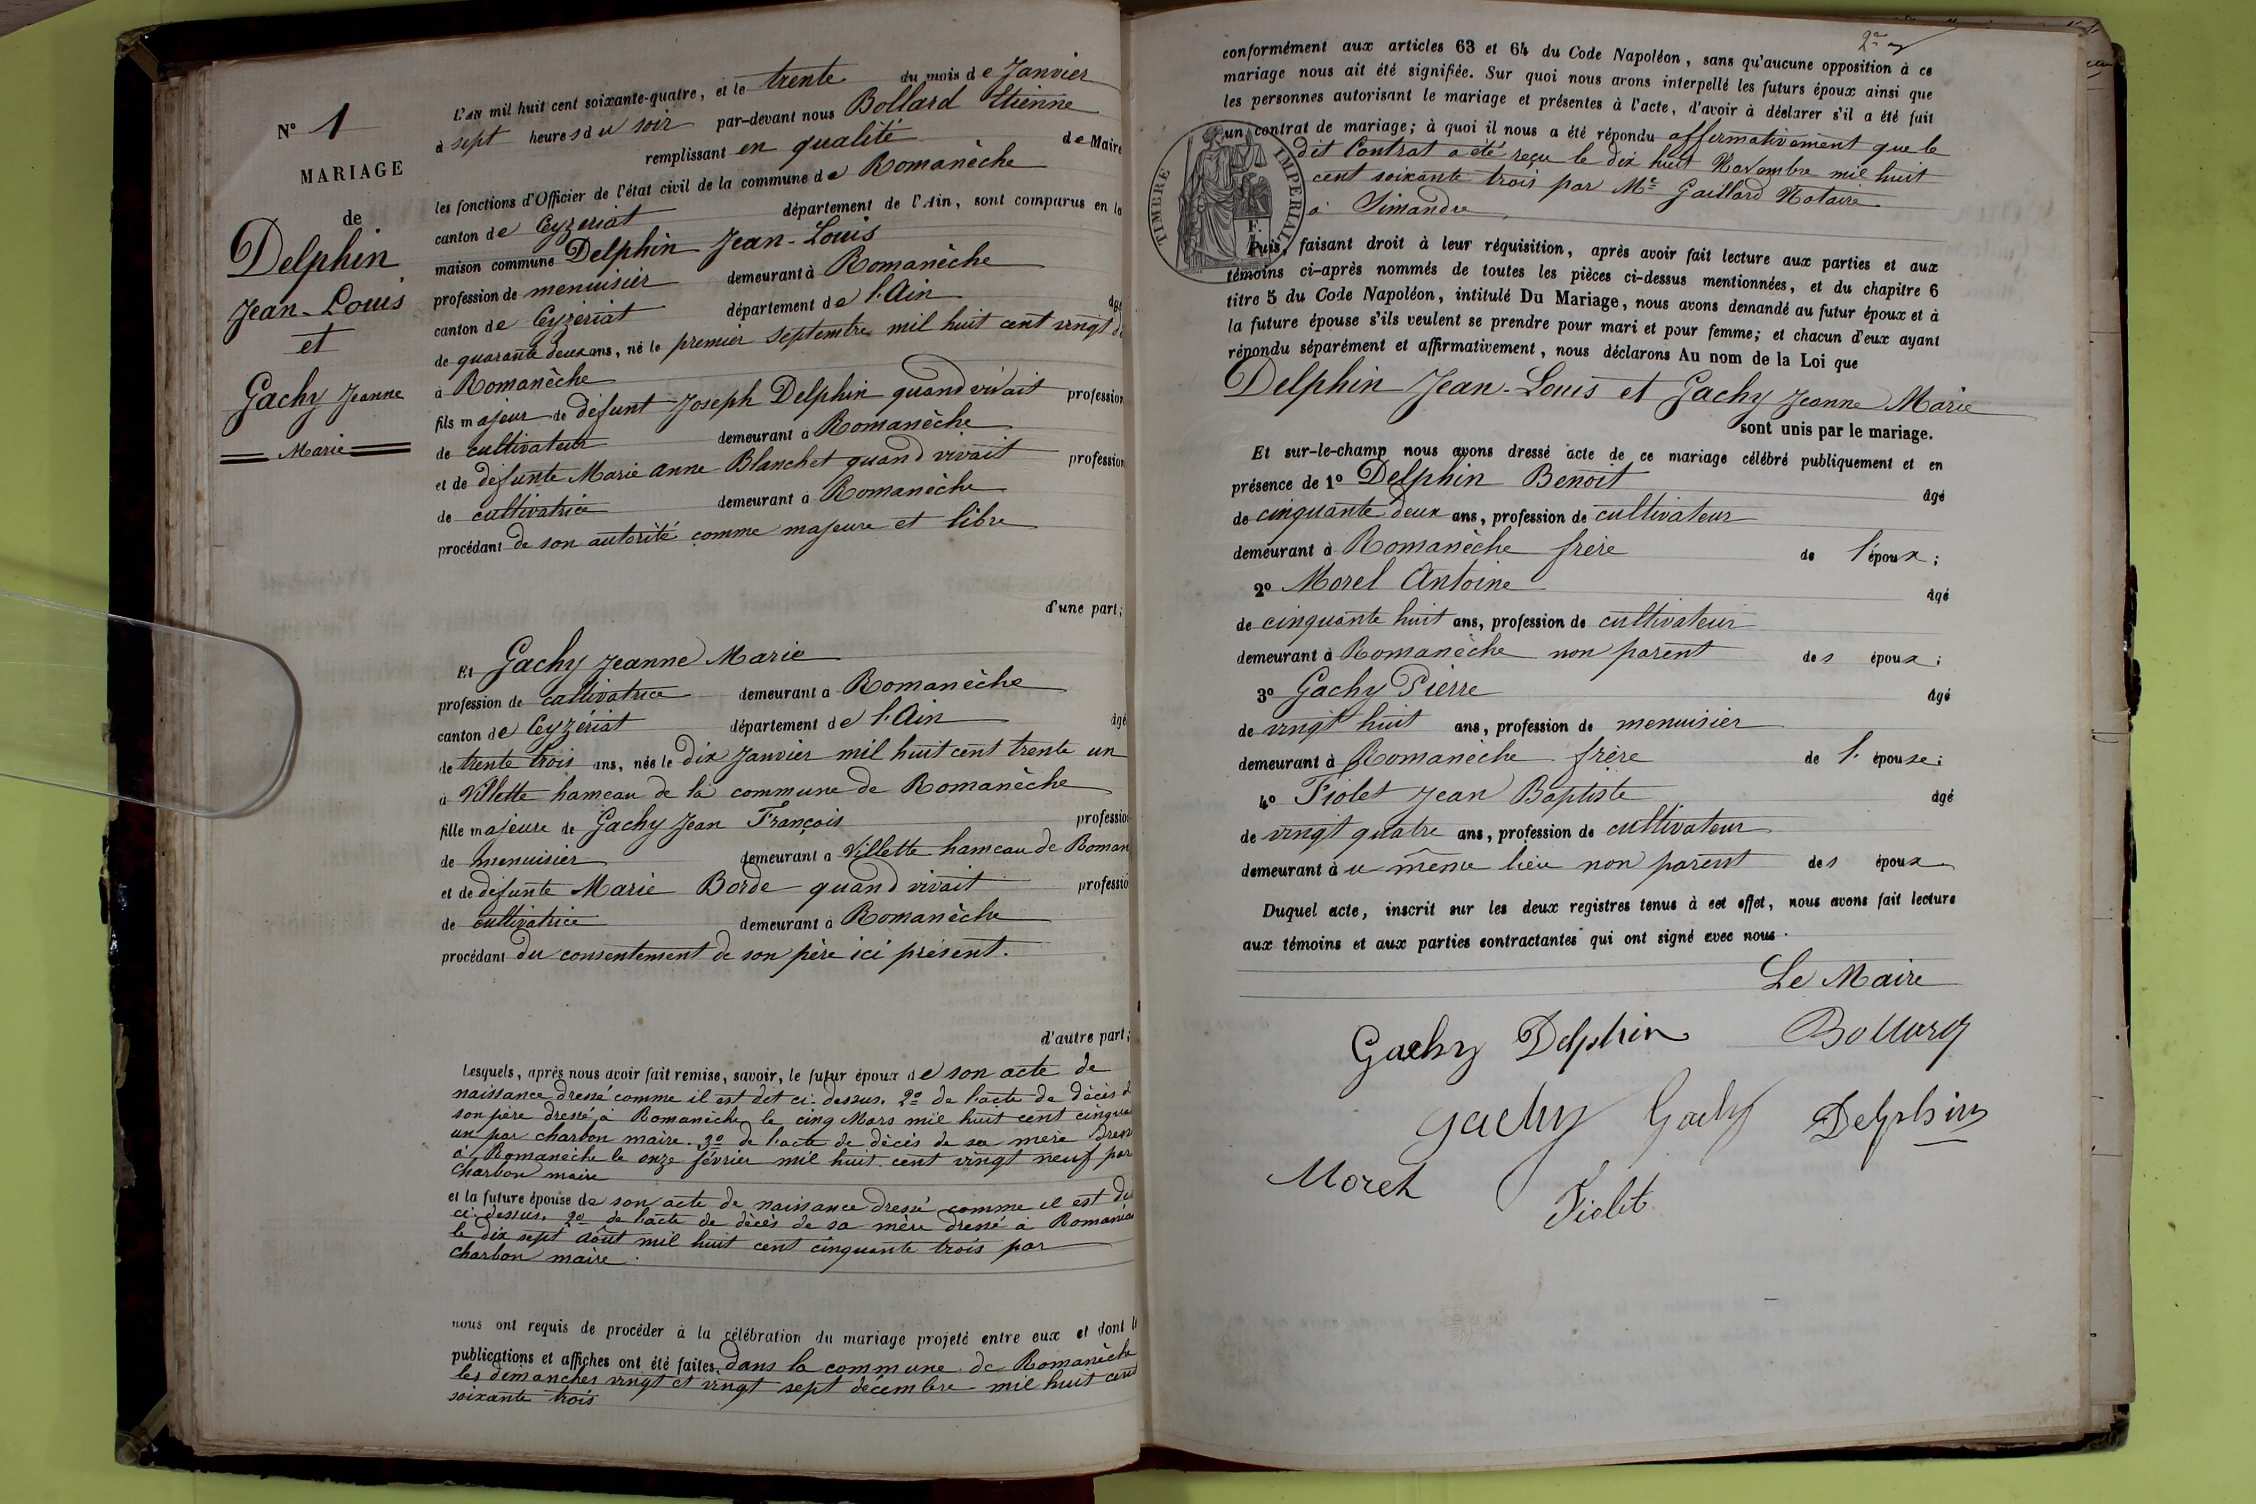 N° 1
MARIAGE
de
Delphin
Jean-Louis
et
Gachy Jeanne
Marie
L'an mil huit cent soixante-quatre, et le trente du mois de Janvier
à sept heures du soir par-devant nous Bollard Etienne
remplissant en qualité de Maire
les fonctions d'Officier de l'état civil de la commune de Romanèche
canton de Ceyzériat département de l'Ain, sont comparus en la
maison commune Delphin Jean-Louis
profession de menuisier demeurant à Romanèche
canton de Ceyzériat département de l'Ain âgé
de quarante deux ans, né le premier septembre mil huit cent vingt
à Romanèche
fils majeur de défunt Joseph Delphin quand vivait profession
de cultivateur demeurant à Romanèche
et de défunte Marie Anne Blanchet quand vivait profession
de cultivatrice demeurant à Romanèche
procédant de son autorité comme majeure et libre
d'une part;
Et Gachy Jeanne Marie
profession de cultivatrice demeurant à Romanèche
canton de Ceyzériat département de l'Ain âgé
de trente trois ans, née le dix Janvier mil huit cent trente un
à Villette hameau de la commune de Romanèche
fille majeure de Gachy Jean François profession
de menuisier demeurant à Villette hameau de Roman
et de défunte Marie Borde quand vivait professio
de cultivatrice demeurant à Romanèche
procédant du consentement de son père ici présent.
d'autre part;
Lesquels, après nous avoir fait remise, savoir, le futur époux de son acte de
naissance dressé comme il est dit ci-dessus. 2° de l'acte de décès d
son père dressé à Romanèche le cinq Mars mil huit cent cinqua
un par charbon maire. 3° de l'acte de décès de sa mère dressé
à Romanèche le onze février mil huit cent vingt neuf par
charbon maire
et la future épouse de son acte de naissance dressé comme il est dit
ci-dessus. 2° de l'acte de décès de sa mère dressé à Romanèc
le dix sept Août mil huit cent cinquante trois par
charbon maire.
nous ont requis de procéder à la célébration du mariage projeté entre eux et dont l
publications et affiches ont été faites dans la commune de Romanèche
les dimanches vingt et vingt sept décembre mil huit cent
soixante trois
conformément aux articles 63 et 64 du Code Napoléon, sans qu'aucune opposition à ce
mariage nous ait été signifiée. Sur quoi nous avons interpellé les futurs époux ainsi que
les personnes autorisant le mariage et présentes à l'acte, d'avoir à déclarer s'il a été fait
un contrat de mariage; à quoi il nous a été répondu affirmativement que le
dit Contrat a été reçu le dix huit Novembre mil huit
cent soixante trois par Me Gaillard Notaire
à Simandre
TIMBRE IMPERIAL
Puis, faisant droit à leur réquisition, après avoir fait lecture aux parties et aux
témoins ci-après nommés de toutes les pièces ci-dessus mentionnées, et du chapitre 6
titre 5 du Code Napoléon, intitulé Du Mariage, nous avons demandé au futur époux et à
la future épouse s'ils veulent se prendre pour mari et pour femme; et chacun d'eux ayant
répondu séparément et affirmativement, nous déclarons Au nom de la Loi que
Delphin Jean-Louis et Gachy Jeanne Marie
sont unis par le mariage.
Et sur-le-champ nous avons dressé acte de ce mariage célébré publiquement et en
présence de 1° Delphin Benoit âgé
de cinquante deux ans, profession de cultivateur
demeurant à Romanèche frère de l'époux;
2° Morel Antoine âgé
de cinquante huit ans, profession de cultivateur
demeurant à Romanèche non parent des époux;
3° Gachy Pierre âgé
de vingt huit ans, profession de menuisier
demeurant à Romanèche frère de l'épouse;
4° Fiolet Jean Baptiste âgé
de vingt quatre ans, profession de cultivateur
demeurant à u même lieu non parent des époux
Duquel acte, inscrit sur les deux registres tenus à cet effet, nous avons fait lecture
aux témoins et aux parties contractantes qui ont signé avec nous.
Le Maire
Gachy Delphin Bollard
Gachy Gachy Delphin
Morel Fiolet